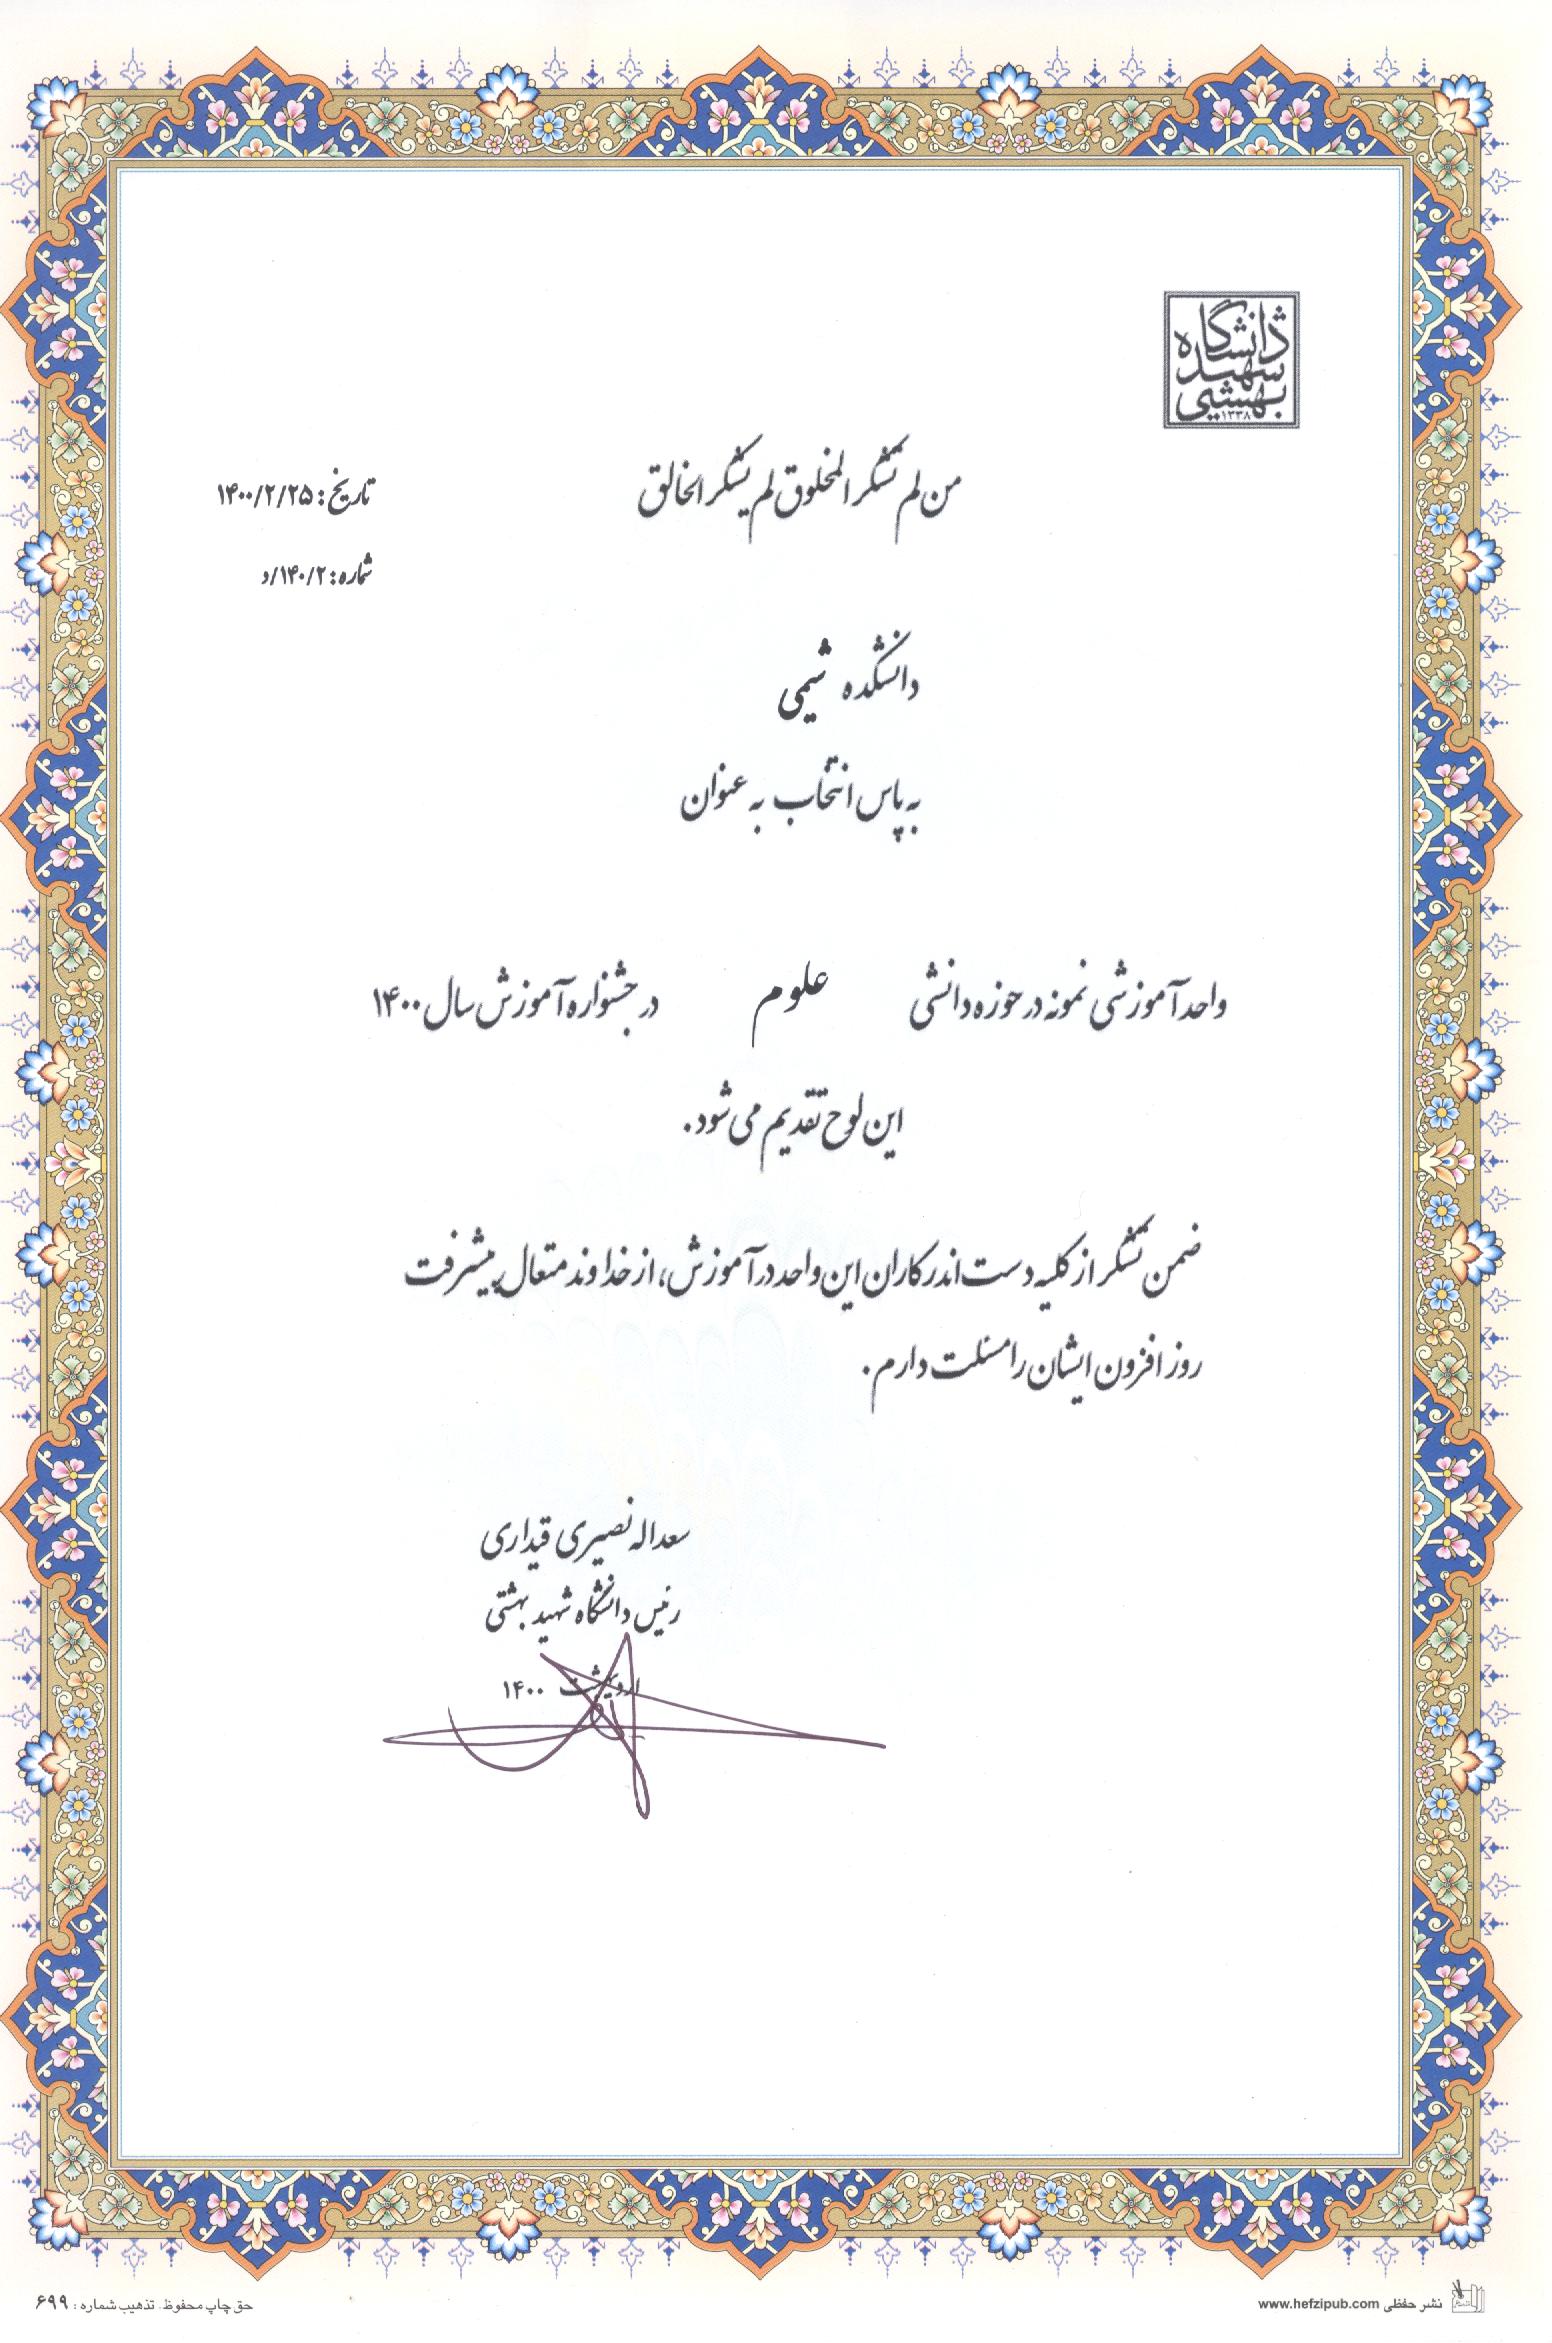 دانشگاه
شهید
بهشتی
۱۳۳۸
من لم یشکر المخلوق لم یشکر الخالق
تاریخ: ۱۴۰۰/۲/۲۵
شماره: ۱۴۰/۲/د
دانشکده شیمی
به پاس انتخاب به عنوان
واحد آموزشی نمونه در حوزه دانشی علوم در جشنواره آموزش سال ۱۴۰۰
این لوح تقدیم می شود.
ضمن تشکر از کلیه دست اندرکاران این واحد در آموزش، از خداوند متعال پیشرفت
روز افزون ایشان را مسئلت دارم.
سعداله نصیری قیداری
رئیس دانشگاه شهید بهشتی
اردیبهشت ۱۴۰۰
نشر حفظی www.hefzipub.com
حق چاپ محفوظ. تذهیب شماره: ۶۹۹